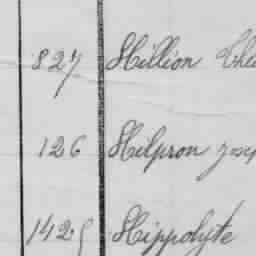 827 Hillion
126 Hilpron Josep
1425 Hippolyte